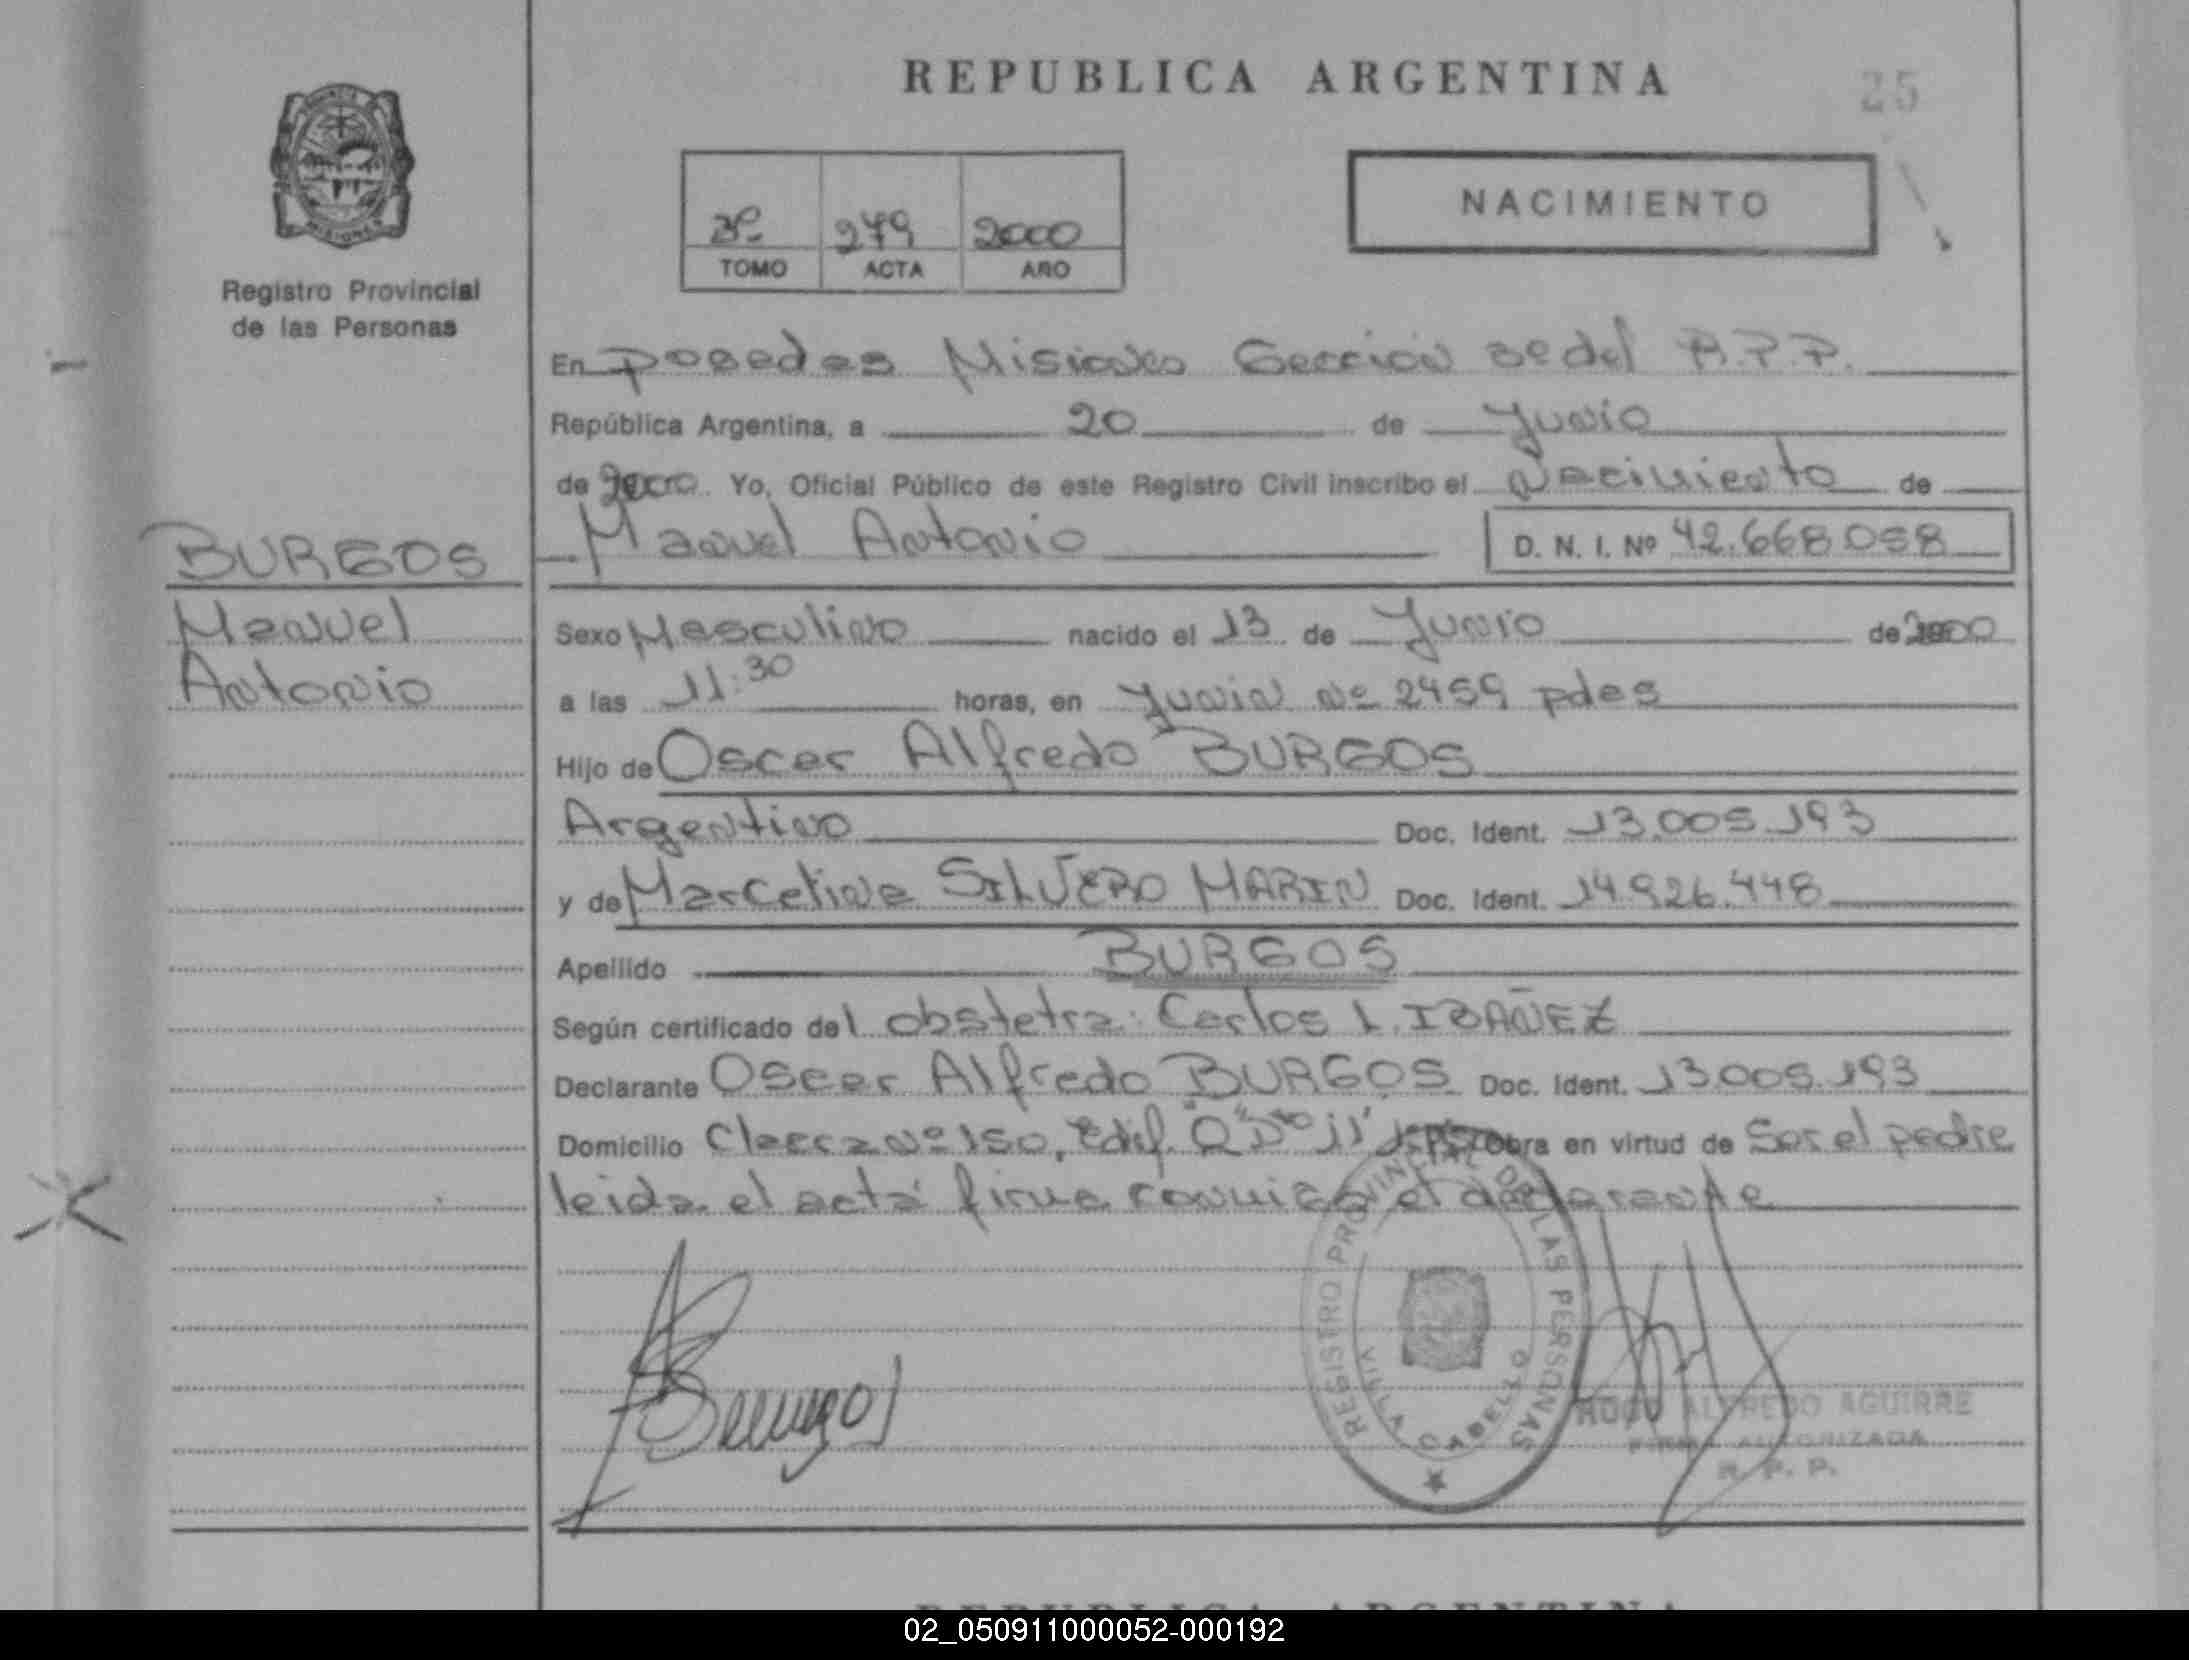 REPUBLICA ARGENTINA
25
Registro Provincial
de las Personas
3º 279 2000
TOMO ACTA AÑO
NACIMIENTO
En posedas Misiones Seccion 3e del R.P.P.
República Argentina, a 20 de Junio
de 2000. Yo, Oficial Público de este Registro Civil inscribo el Nacimiento de
Manuel Antonio D. N. I. Nº 42.668.058
BURGOS
Manuel
Antonio
Sexo Masculino nacido el 13 de Junio de 2000
a las 11:30 horas, en Junin Nº 2459 pdas
Hijo de Oscar Alfredo BURGOS
Argentino Doc. Ident. 13.005.193
y de Marcelina SILVERO MARIN Doc. Ident. 14.926.448
Apellido BURGOS
Según certificado del obstetra: Carlos L. IBAÑEZ
Declarante Oscar Alfredo BURGOS Doc. Ident. 13.005.193
Domicilio Nº 150, Edif. Obra en virtud de Ser el padre
leida el acta firma conmigo el declarante
REGISTRO PROVINCIAL DE LAS PERSONAS
VILLA CABELLO
HUGO ALFREDO AGUIRRE
FIRMA AUTORIZADA
R. P. P.
REPUBLICA ARGENTINA
02_050911000052-000192